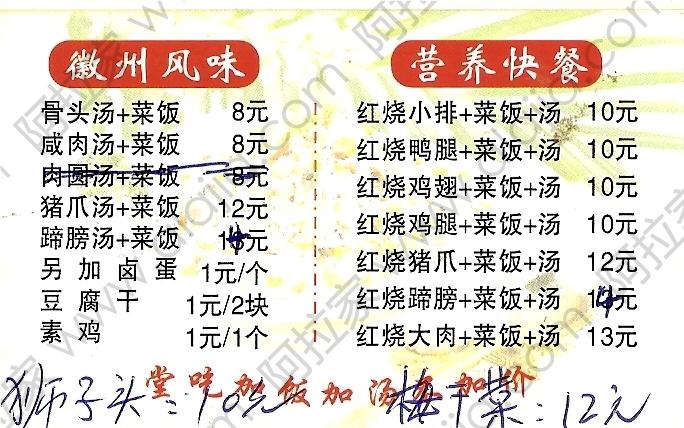 徽州风味
骨头汤+菜饭 8元
咸肉汤+菜饭 8元
肉圆汤+菜饭 8元
猪爪汤+菜饭 12元
蹄膀汤+菜饭 14元
另加卤蛋 1元/个
豆腐干 1元/2块
素鸡 1元/1个
营养快餐
红烧小排+菜饭+汤 10元
红烧鸭腿+菜饭+汤 10元
红烧鸡翅+菜饭+汤 10元
红烧鸡腿+菜饭+汤 10元
红烧猪爪+菜饭+汤 12元
红烧蹄膀+菜饭+汤 14元
红烧大肉+菜饭+汤 13元
堂吃加饭加汤不加价
狮子头:10元 梅干菜:12元
阿拉家